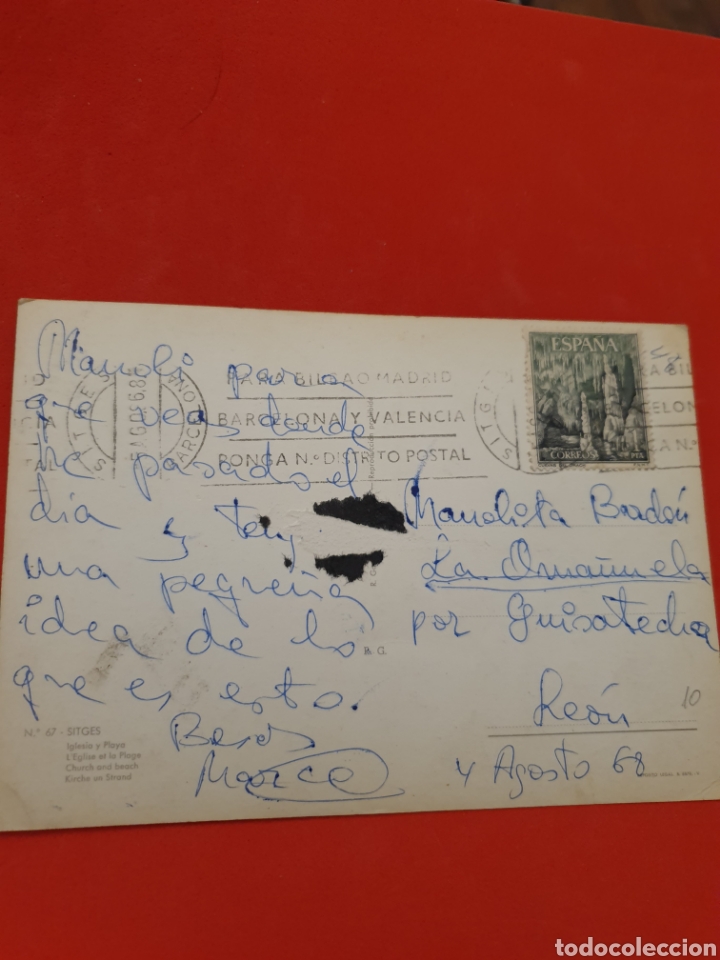 Manoli para
que veas donde
he pasado el
día y
una pequeña
idea de lo
que es esto.
Besos
Marce
SITGES
BARCELONA
PARA BILBAO MADRID
BARCELONA Y VALENCIA
PONGA N.º DISTRITO POSTAL
ESPAÑA
CORREOS
PTA
SITG
RA BIL
CELON
A N.º
Manolita Bardón
La Omañuela
por Guisatecha
León
4 Agosto 68
10
B. G.
N.º 67 - SITGES
Iglesia y Playa
L'Eglise et la Plage
Church and beach
Kirche un Strand
todocoleccion